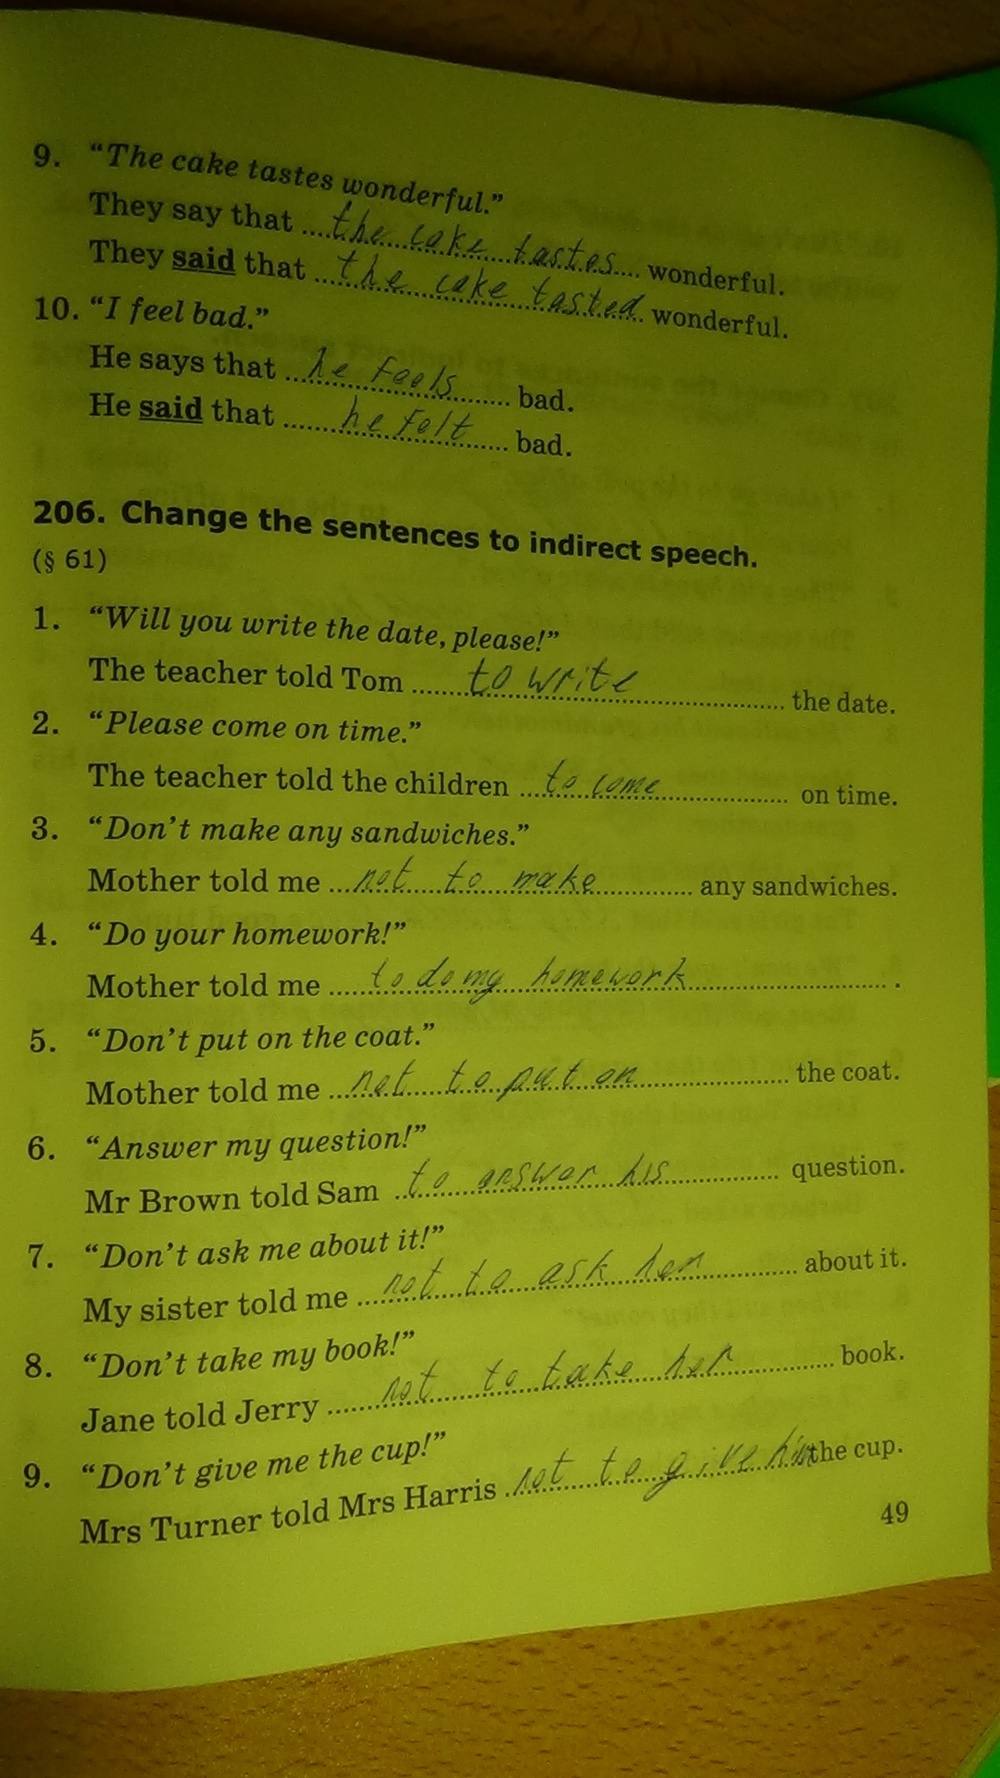 9. “The cake tastes wonderful.”
They say that the cake tastes wonderful.
They said that the cake tasted wonderful.
10. “I feel bad.”
He says that he feels bad.
He said that he felt bad.
206. Change the sentences to indirect speech.
(§ 61)
1. “Will you write the date, please!”
The teacher told Tom to write the date.
2. “Please come on time.”
The teacher told the children to come on time.
3. “Don’t make any sandwiches.”
Mother told me not to make any sandwiches.
4. “Do your homework!”
Mother told me to do my homework.
5. “Don’t put on the coat.”
Mother told me not to put on the coat.
6. “Answer my question!”
Mr Brown told Sam to answer his question.
7. “Don’t ask me about it!”
My sister told me not to ask her about it.
8. “Don’t take my book!”
Jane told Jerry not to take her book.
9. “Don’t give me the cup!”
Mrs Turner told Mrs Harris not to give him the cup.
49